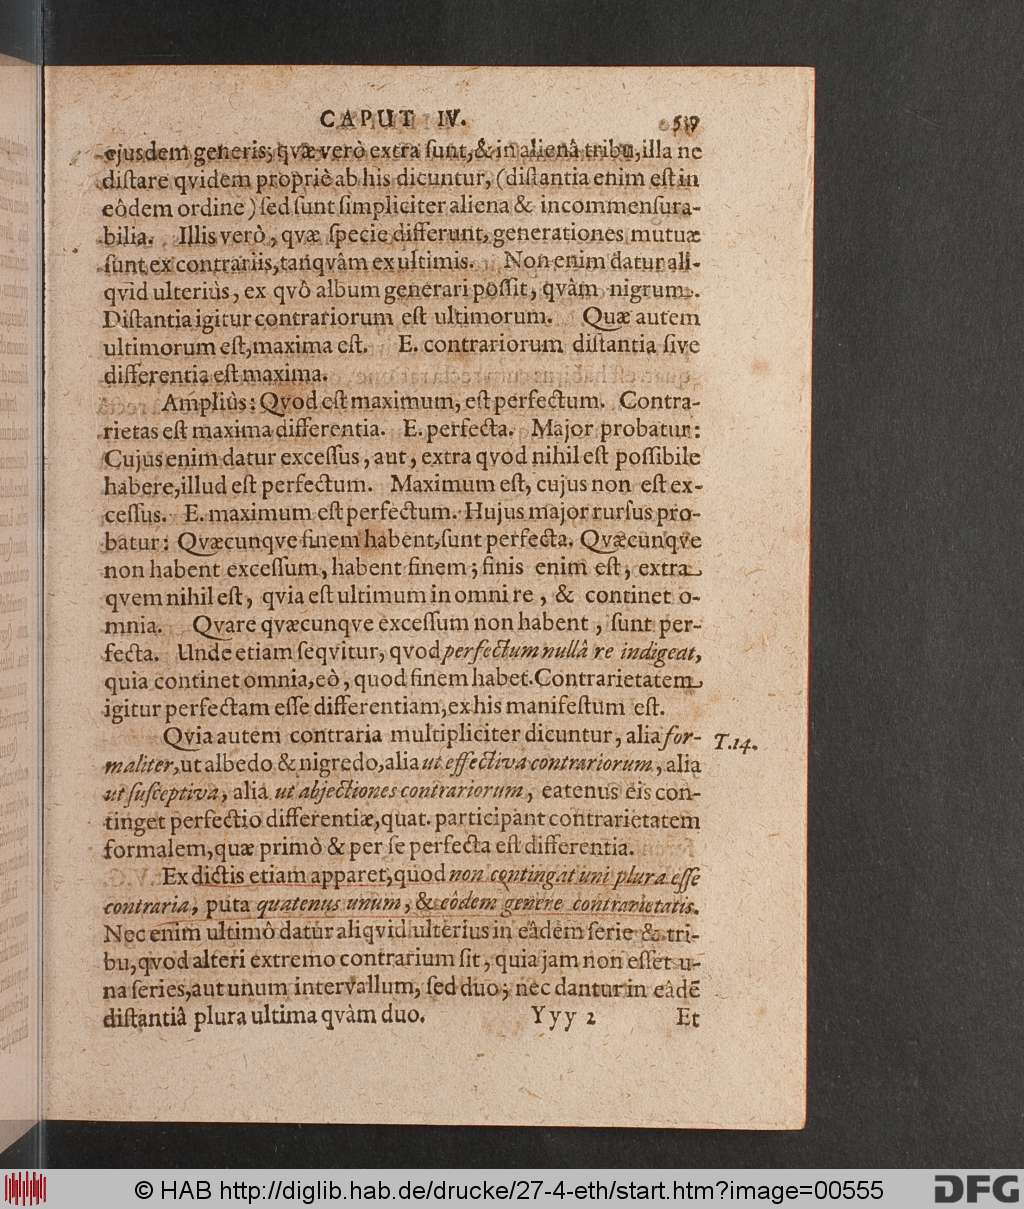 CAPUT IV. 519
ejusdem generis; qvæ verò extra ſunt, & in alienâ tribu, illa ne
diſtare qvidem propriè ab his dicuntur, (diſtantia enim eſt in
eôdem ordine) ſed ſunt ſimpliciter aliena & incommenſura-
bilia. Illis verò, qvæ ſpecie differunt, generationes mutuæ
ſunt ex contrariis, tanqvâm ex ultimis. Non enim datur ali-
qvid ulteriùs, ex qvô album generari poſſit, qvâm nigrum.
Diſtantia igitur contrariorum eſt ultimorum. Quæ autem
ultimorum eſt, maxima eſt. E. contrariorum diſtantia ſive
differentia eſt maxima.
Ampliùs: Qvod eſt maximum, eſt perfectum. Contra-
rietas eſt maxima differentia. E. perfecta. Major probatur:
Cujus enim datur exceſſus, aut, extra qvod nihil eſt poſſibile
habere, illud eſt perfectum. Maximum eſt, cujus non eſt ex-
ceſſus. E. maximum eſt perfectum. Hujus major rurſus pro-
batur: Qvæcunqve finem habent, ſunt perfecta. Qvæcunqve
non habent exceſſum, habent finem; finis enim eſt, extra
qvem nihil eſt, qvia eſt ultimum in omni re, & continet o-
mnia. Qvare qvæcunqve exceſſum non habent, ſunt per-
fecta. Unde etiam ſeqvitur, qvod perfectum nullâ re indigeat,
quia continet omnia, eò, quod finem habet. Contrarietatem
igitur perfectam eſſe differentiam, ex his manifeſtum eſt.
Qvia autem contraria multipliciter dicuntur, alia for- T.14.
maliter, ut albedo & nigredo, alia ut effectiva contrariorum, alia
ut ſuſceptiva, alia ut abjectiones contrariorum, eatenus eis con-
tinget perfectio differentiæ, quat. participant contrarietatem
formalem, quæ primò & per ſe perfecta eſt differentia.
Ex dictis etiam apparet, quod non contingat uni plura eſſe
contraria, puta quatenus unum, & eôdem genere contrarietatis.
Nec enim ultimô datur aliqvid ulterius in eâdem ſerie & tri-
bu, qvod alteri extremo contrarium ſit, quia jam non eſſet u-
na ſeries, aut unum intervallum, ſed duo; nec dantur in eâdē
diſtantiâ plura ultima qvàm duo. Yyy 2 Et
© HAB http://diglib.hab.de/drucke/27-4-eth/start.htm?image=00555 DFG